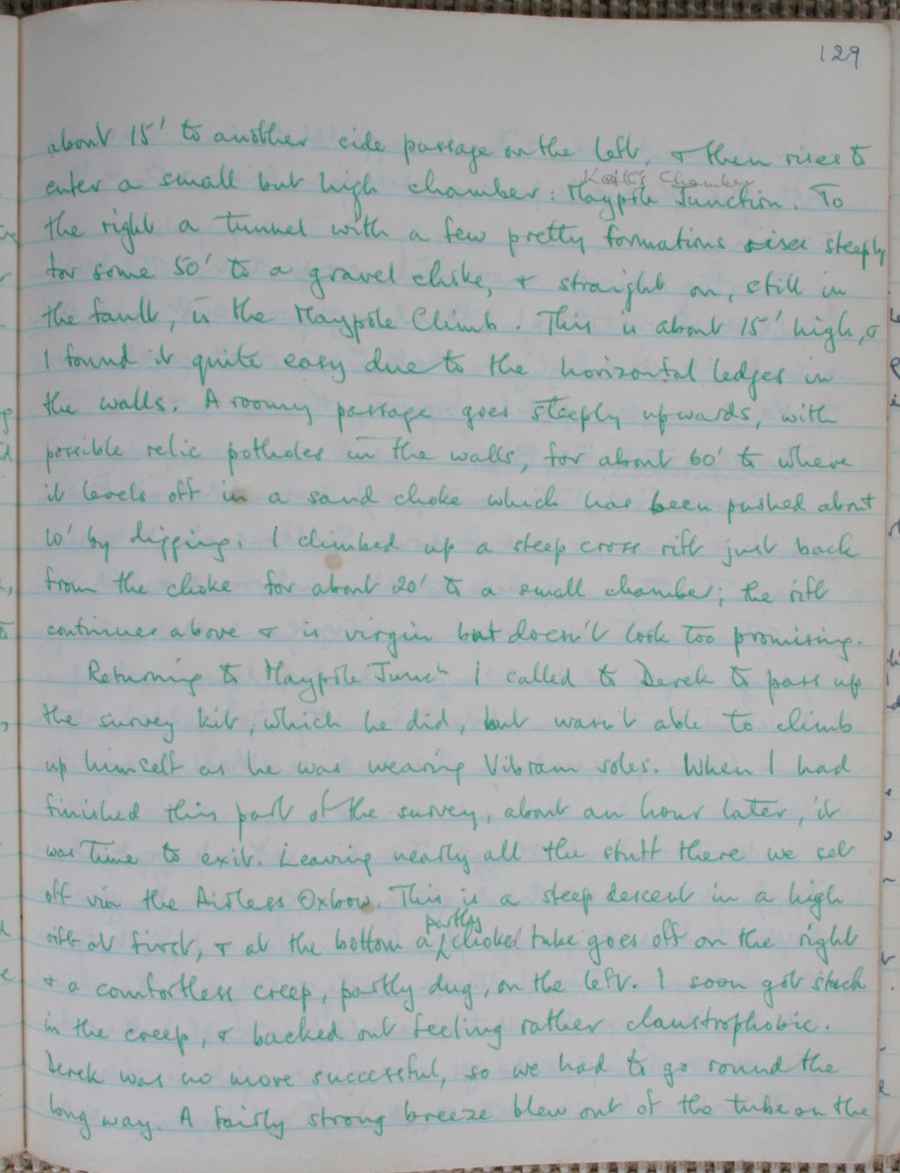 129
about 15' to another side passage on the left, & then rises to
Keith's Chamber
enter a small but high chamber: Maypole Junction. To
the right a tunnel with a few pretty formations rises steeply
for some 50' to a gravel choke, & straight on, still in
the fault, is the Maypole Climb. This is about 15' high, &
I found it quite easy due to the horizontal ledges in
the walls. A roomy passage goes steeply upwards, with
possible relic potholes in the walls, for about 60' to where
it levels off in a sand choke which has been pushed about
10' by digging. I climbed up a steep cross rift just back
from the choke for about 20' to a small chamber; the rift
continues above & is virgin but doesn't look too promising.
Returning to Maypole Junct I called to Derek to pass up
the survey kit, which he did, but wasn't able to climb
up himself as he was wearing Vibram soles. When I had
finished this part of the survey, about an hour later, it
was time to exit. Leaving nearly all the stuff there we set
off via the Airless Oxbow. This is a steep descent in a high
partly
rift at first, & at the bottom a choked tube goes off on the right
& a comfortless creep, partly dug, on the left. I soon got stuck
in the creep, & backed out feeling rather claustrophobic.
Derek was no more successful, so we had to go round the
long way. A fairly strong breeze blew out of the tube on the